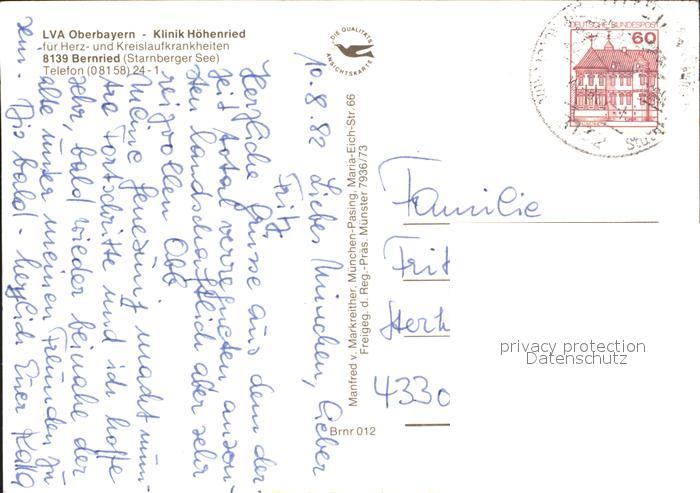 LVA Oberbayern - Klinik Höhenried
für Herz- und Kreislaufkrankheiten
8139 Bernried (Starnberger See)
Telefon (08158) 24-1
DIE QUALITÄTS
ANSICHTSKARTE
DEUTSCHE BUNDESPOST
60
10.8.82 Liebes Minchen, lieber
Fritz
Herzliche Grüsse aus dem der
zeit total verregneten, ansons
ten landschaftlich aber sehr
reizvollen Obb
Meine Genesung macht mun
tre Fortschritte und ich hoffe
sehr, bald wieder beinahe der
alte unter meinen Freunden zu
sein. Bis bald - herzlich Euer
Manfred v. Markreither, München-Pasing, Maria-Eich-Str. 66
Freigeg. d. Reg.-Präs. Münster 7936/73
Brnr 012
Familie
Frit
4330
privacy protection
Datenschutz